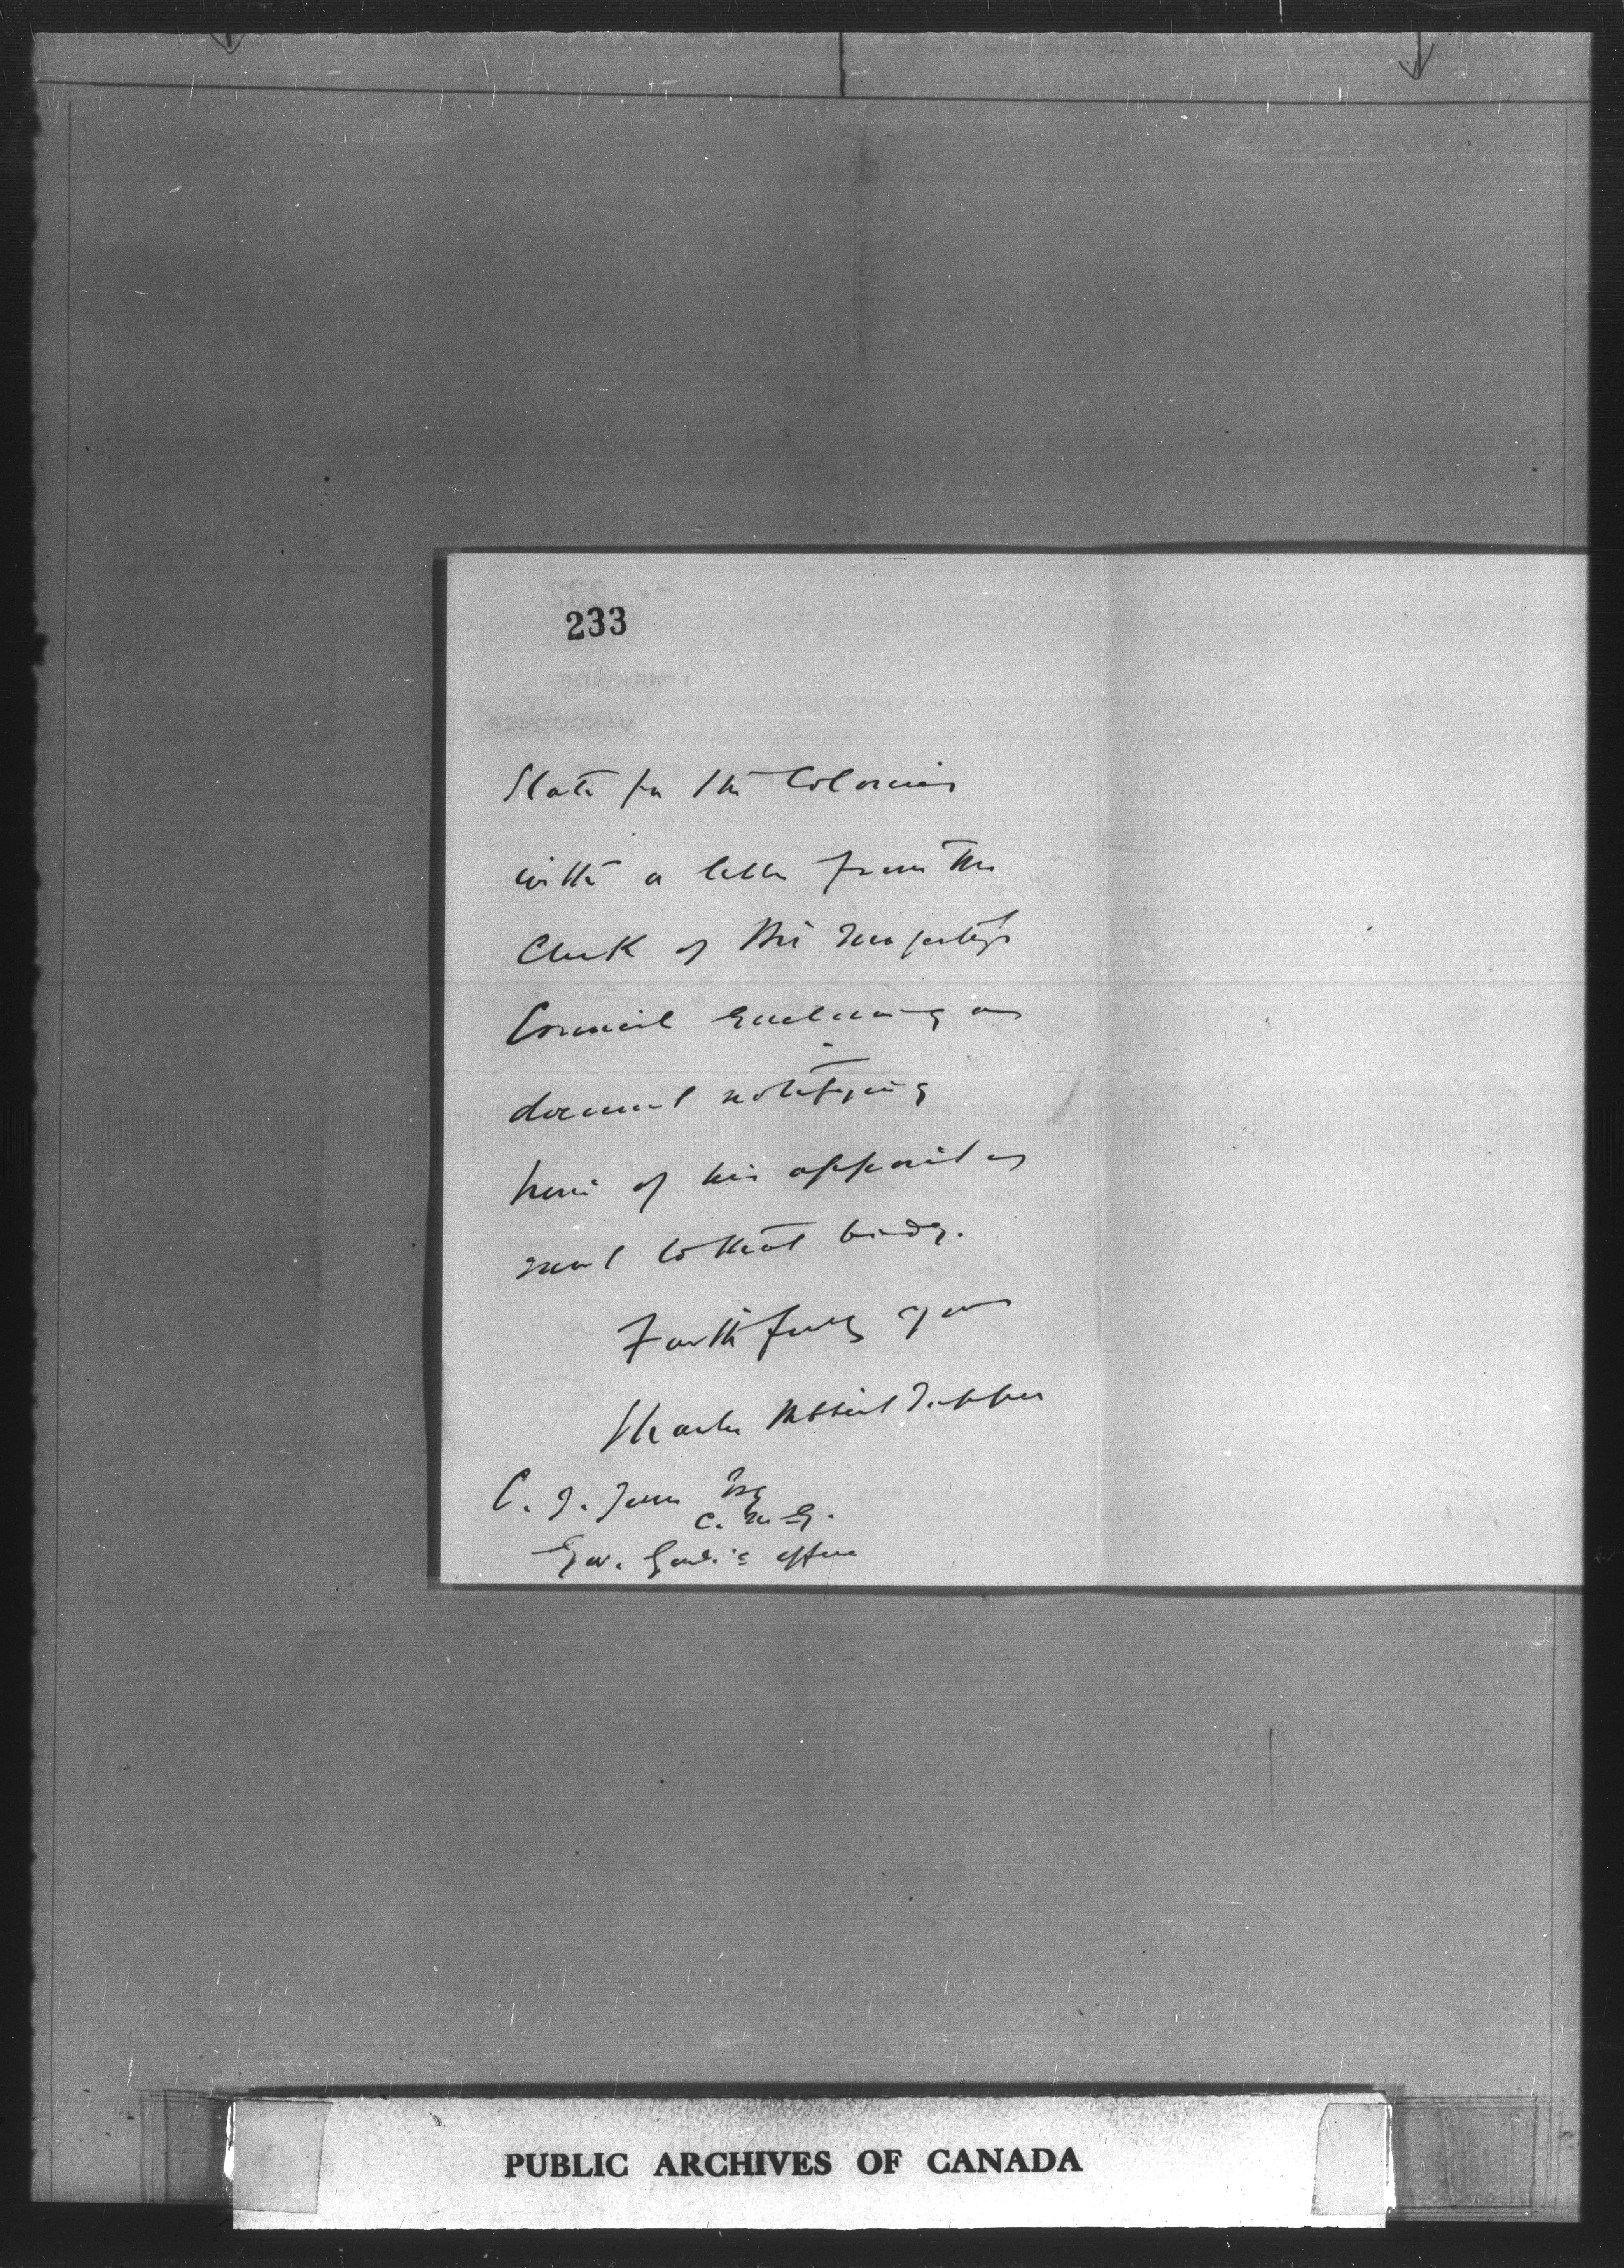 233
State for the Colonies
with a letter from the
Clerk of His Majesty's
Council enclosing a
document notifying
him of his appoint
ment to that body.
Faithfully yours
Charles Hibbert Tupper
C. J. Jones Esq
C. M. G.
Gov. Genl's office
PUBLIC ARCHIVES OF CANADA